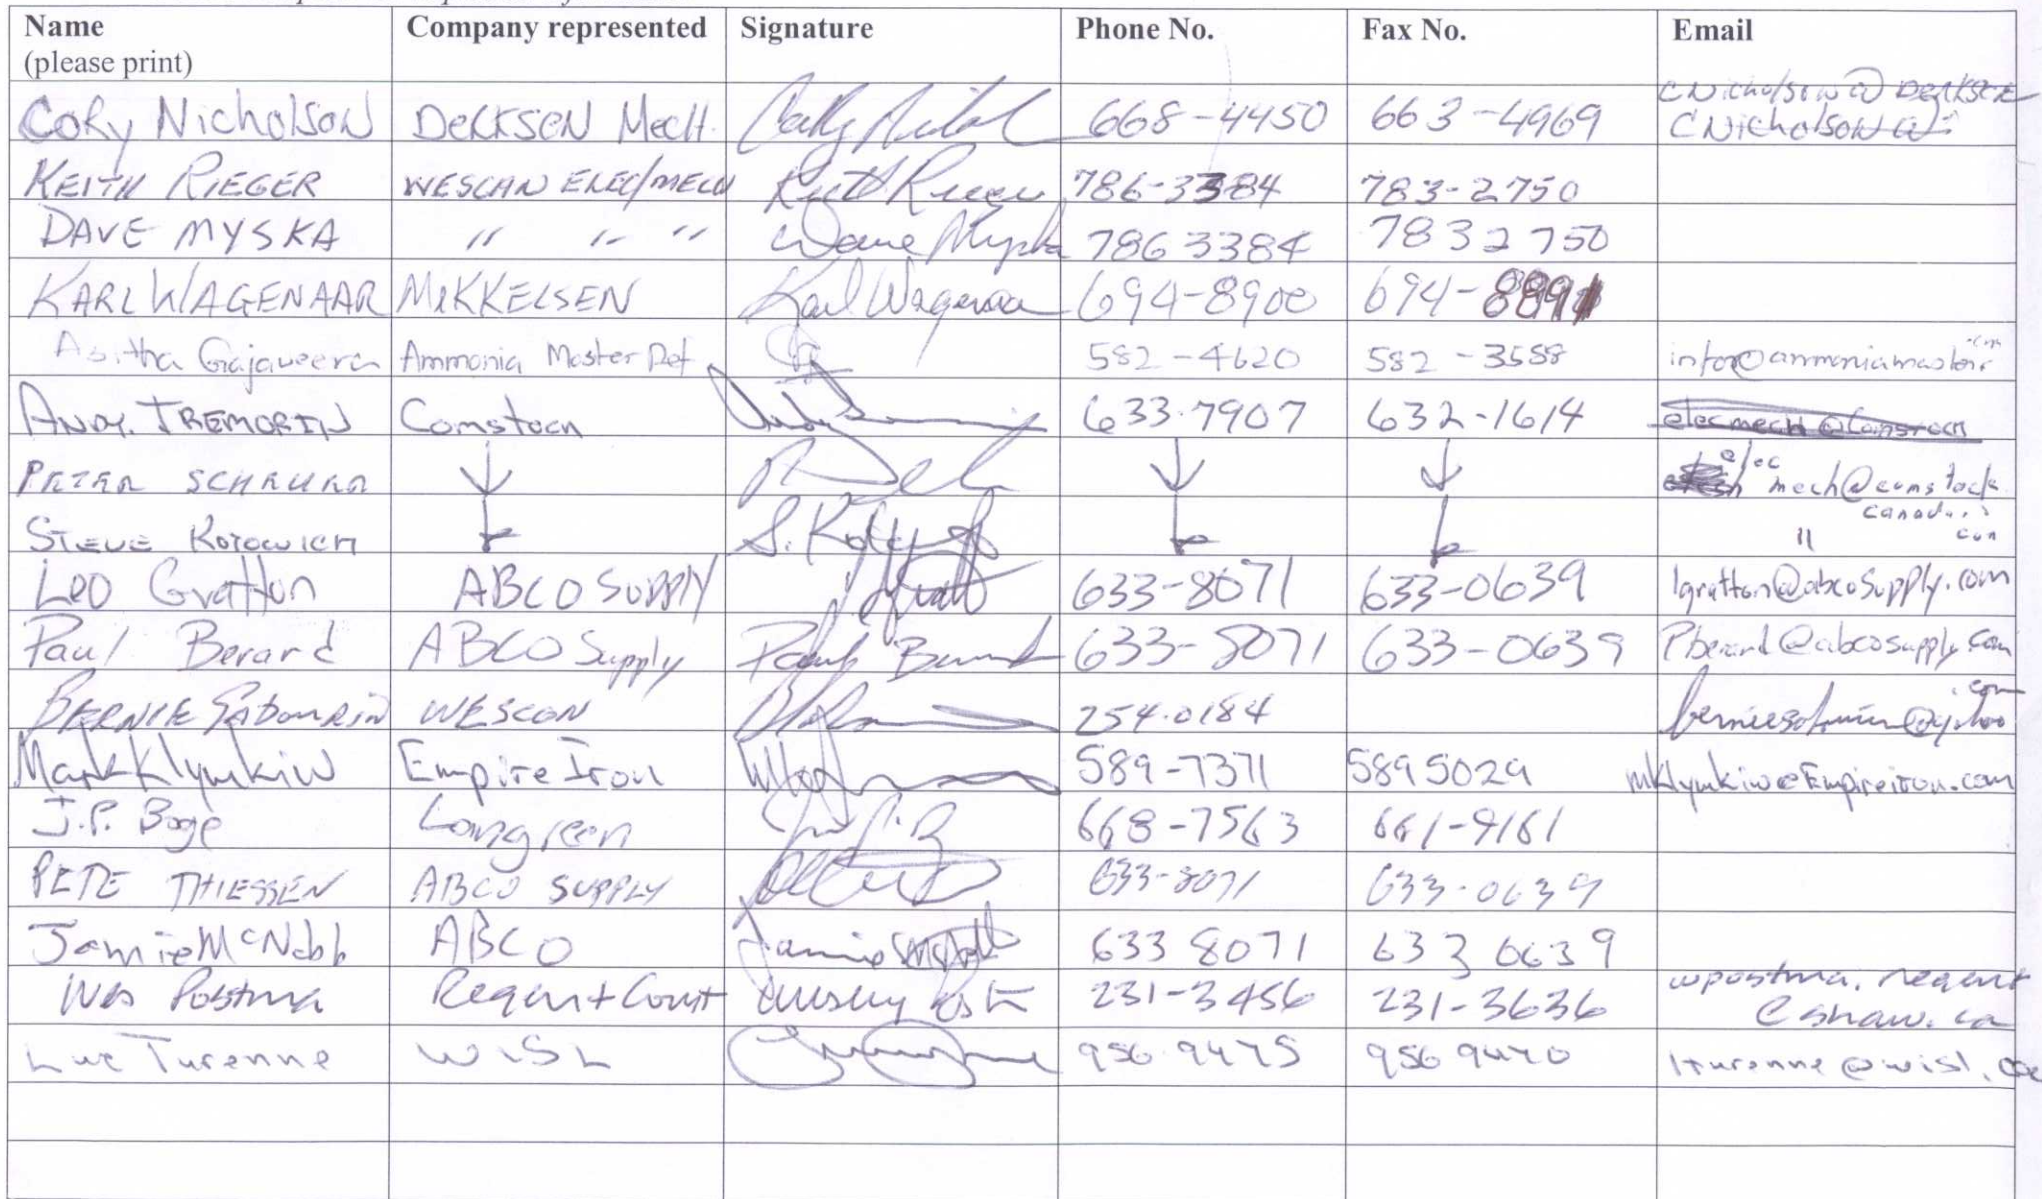 Name Company represented Signature Phone No. Fax No. Email
(please print)
Cory Nicholson Derksen Mech. 668-4450 663-4969 CNicholson@Derksen
CNicholson@
KEITH RIEGER WESCAN ELEC/MECH Keith Rieger 786-3384 783-2750
DAVE MYSKA " " " Dave Myska 786 3384 783 2750
KARL WAGENAAR MIKKELSEN Karl Wagenaar 694-8900 694-8891
Asitha Gajaweera Ammonia Master Ref 582-4620 582-3588 info@ammoniamaster.com
ANDY TREMORIN Comstock 633-7907 632-1614 elecmech@Comstock
PETER SCHEURER elec
mech@comstock
canada.
STEVE KOTOWICH S. " com
Leo Gratton ABCO SUPPLY 633-8071 633-0639 lgratton@abcosupply.com
Paul Berard ABCO Supply Paul 633-8071 633-0639 Pberard@abcosupply.com
BERNIE SABOURIN WESCON 254.0184 berniesabourin@yahoo.com
Mark Klymkiw Empire Iron 589-7371 589 5029 mklymkiw@Empireiron.com
J.P. Boge Longreen 668-7563 661-9161
PETE THIESSEN ABCO SUPPLY 633-8071 633-0639
Jamie McNabb ABCO Jamie 633 8071 633 0639
Wes Postma Regent Const 231-3456 231-3636 wpostma.regent
@shaw.ca
Luc Turenne WISL 956.9475 956 9470 lturenne@wisl.ca